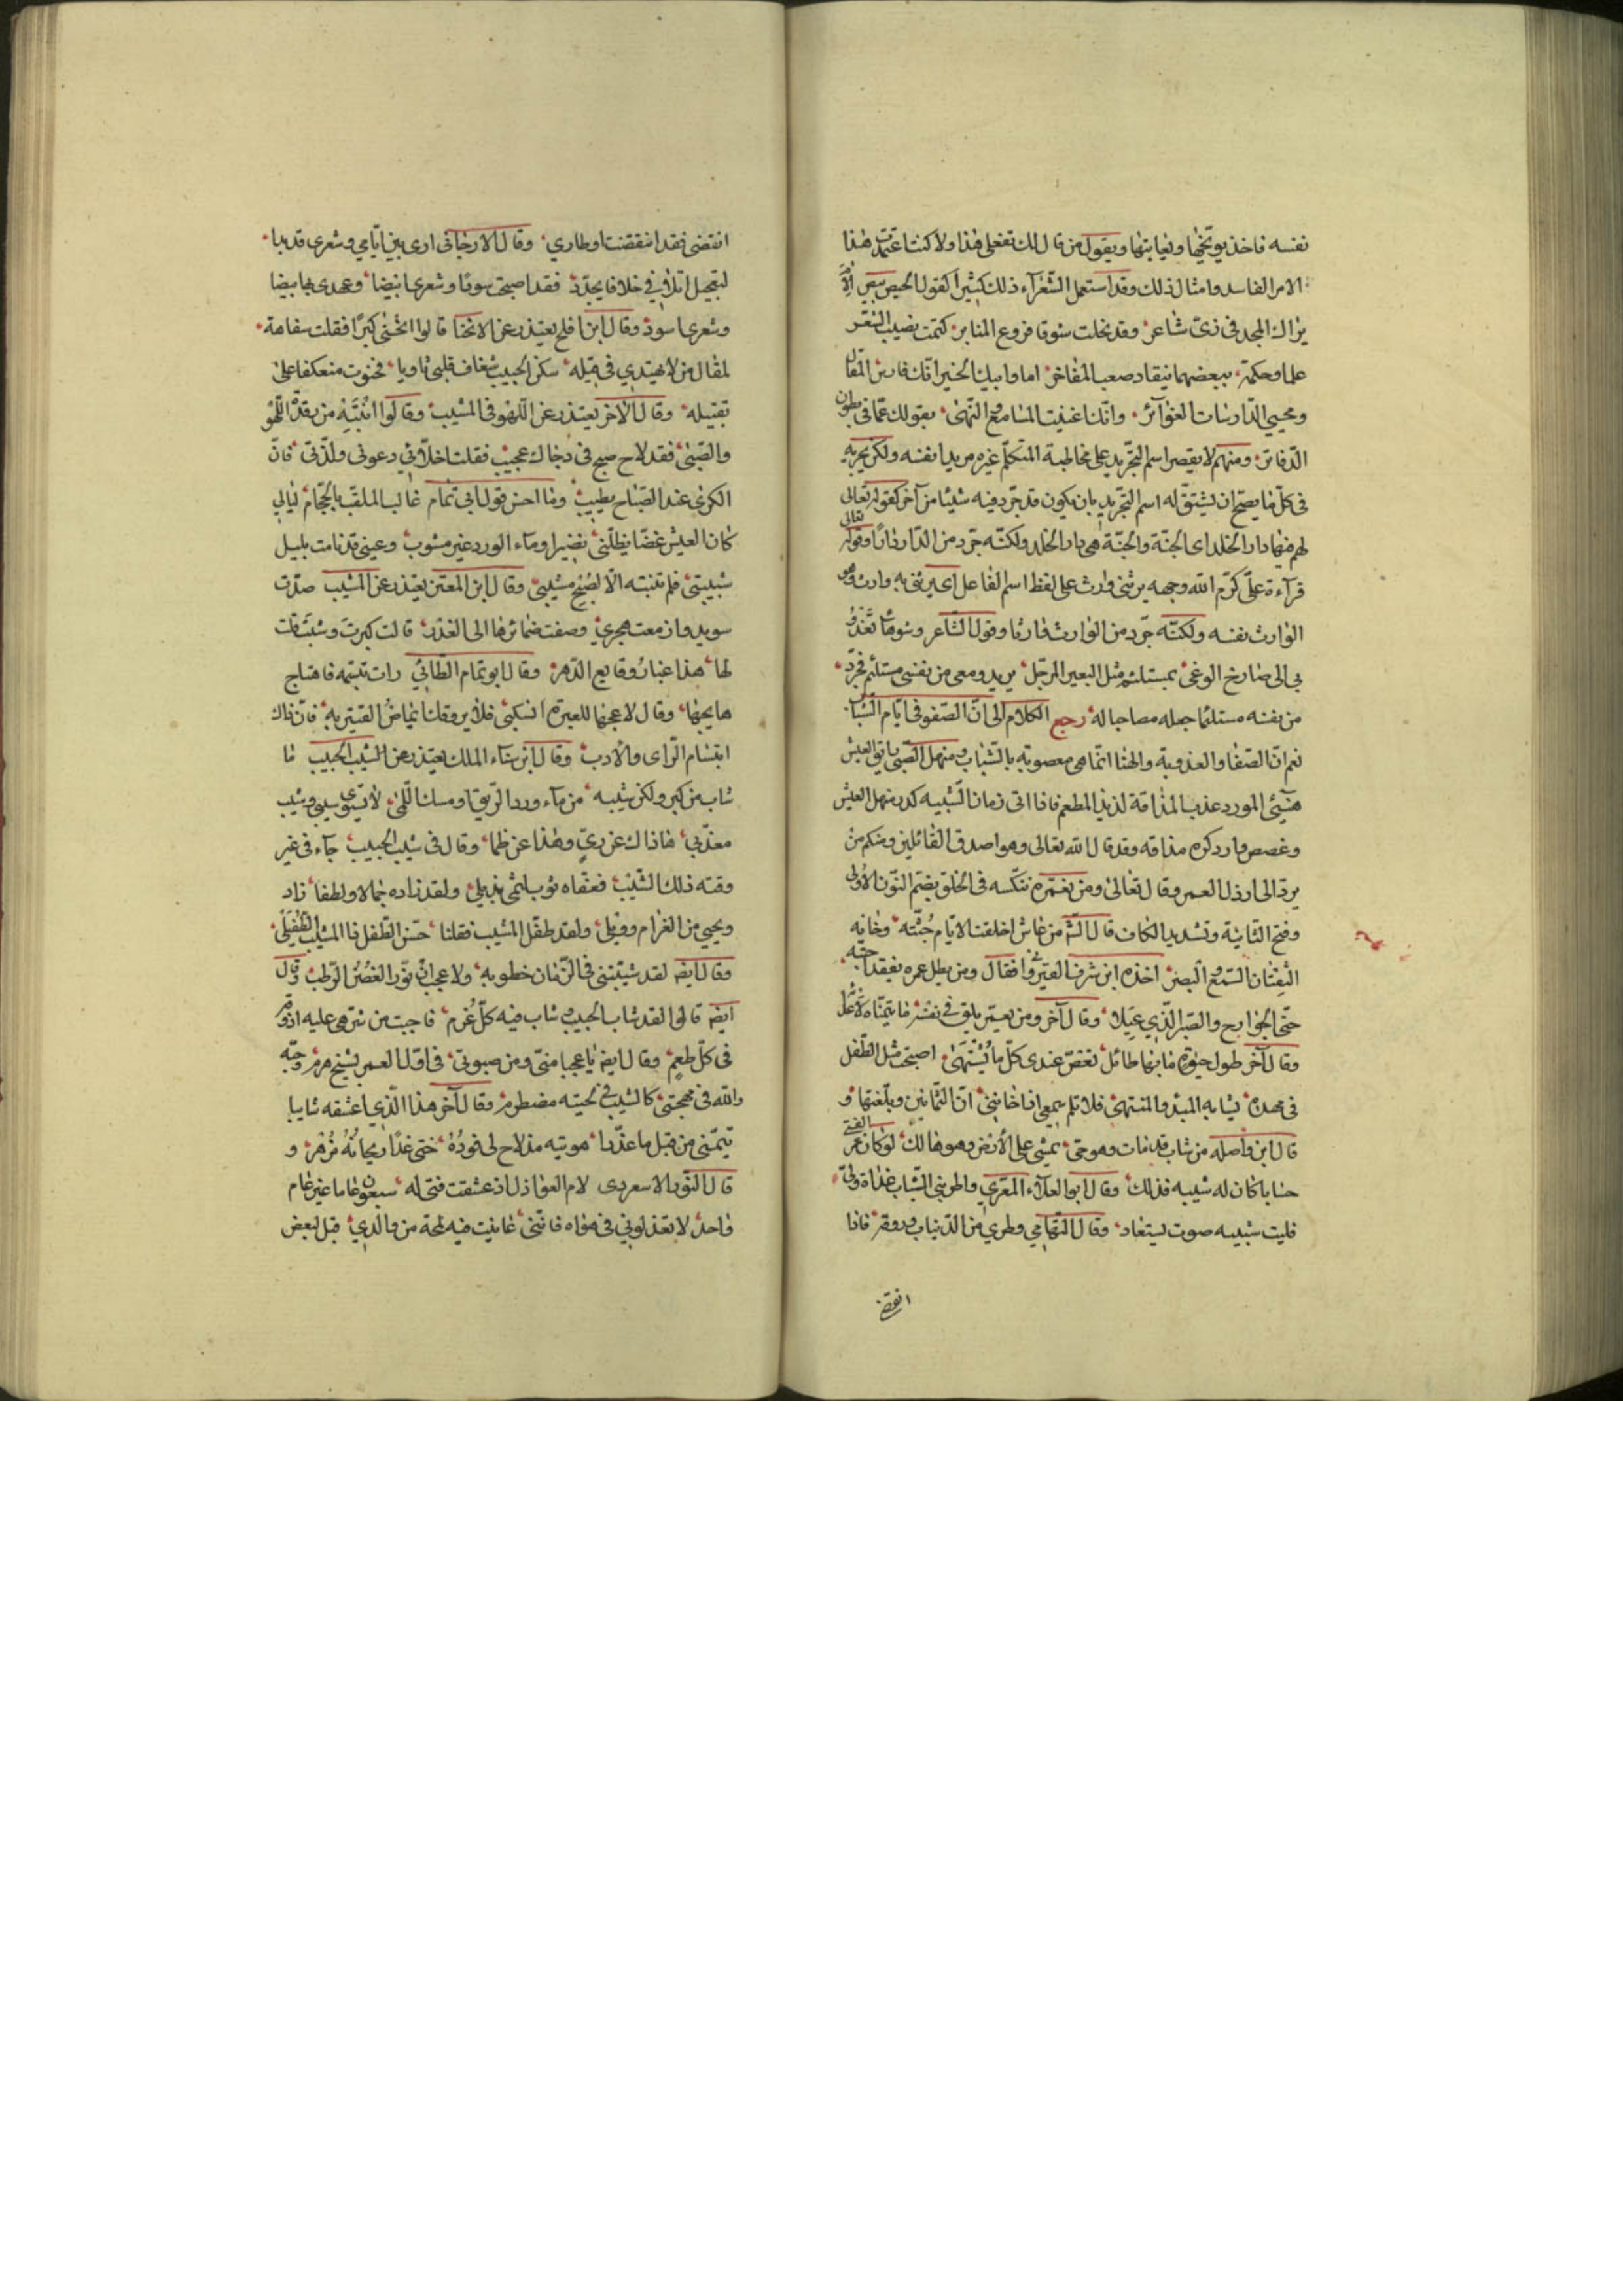 نفسه فاخذ يوبخها ويعاتبها ويقول من قال لك تفعلى هذا ولا كنت اعتمدت هذا
الامر الفاسد وامثال ذلك وقد استعمل الشعرآء ذلك كثيرا كقول الحيص بيص الام
يراك المجد فى زىّ شاعر وقد نحلت شوقا فروع المنابر كتمت بصيت الشعر
علما وحكمة ببعضهما ينقاد صعب المفاخر اما وابيك الخير انك فارس المقال
ومحيي الدارسات الغوآئر وانك اغنيت المسامع والنهى بقولك عما فى بطون
الدفاتر ومنهم لا يقصر اسم التجريد على مخاطبة المتكلم غيره مريدا نفسه ولكن يجريه
فى كل ما يصح ان يشتق له اسم التجريد بان يكون قد جرد فيه شيئا من آخر كقوله تعالى
لهم فيها دار الخلد اى الجنة والجنة هى دار الخلد ولكنه جرد من الدار دارا وقوله تعالى
قرآءة علىّ كرّم الله وجهه يرثنى وارث على لفظ اسم الفاعل اى يرثنى به وارث وهو
الوارث نفسه ولكنه جرد من الوارث وارثا وقول الشاعر وشوهآ تغدو
بى الى صارخ الوغى بمستلئم مثل البعير المرحل يريد ومعى من نفسى مستلئم فجرد
من نفسه مستلئما جعله مصاحبا له رجع الكلام الى ان الصفو فى ايام الشباب
نعم ان الصفا والعذوبة والهنا انما هى معصوبة بالشباب ومنهل الصبى باق العيش
هنيئ المورد عذب المذاقة لذيذ المطعم فاذا اتى زمان الشبيبه كدر منهل العيش
وغصص وارد كره مذاقه وقد قال الله تعالى وهو اصدق القائلين ومنكم من
يردّ الى ارذل العمر وقال تعالى ومن نعمره ننكسه فى الخلق بضم النون الاولى
وفتح الثانية وتشديد الكاف قال الشر من عاش اخلقت الايام جُثّته وخانه
الثِقتان السمع والبصر اخذه ابن شرف القيروانى فقال ومن يطل عمره يفقد احبته
حتى الجوارح والصبر الذي عيلا وقال آخر ومن يعمر يلق فى نفسه ما يتمناه لاعدائه
وقال آخر طول حيوة ما بها طائل نغص عندى كل ما يُشْتهى اصبحت مثل الطفل
فى مهده تشابه المبدأ والمنتهى فلا تلم سمعى اذا خاننى انّ الثمانين وبلغتها و
قال ابن واصله من شاب قد مات وهو حى يمشى على الارض وهو هالك لو كان عمر الفتى
حسابا كان له شيبه فذلك وقال ابو العلآء المعرّي واطربنى الشباب غداة ولىّ
فليت شبيبه صوت يستعاد وقال التهامي وطري من الدنيا ب ورونقه فاذا
انقضى
انقضى فقد انقضت اوطاري وقال الارجانى ارى بين ايامي وشعرى قد بدا
لتعجيل اتلافى خلافا يجدّد فقد اصبحت سودًا وشعرى ابيضا وعهدى بها بيضا
وشعرى اسود وقال ابن افلح يعتذر عن الانحنا قالوا انحنى كبرًا فقلت سفاهة
لمقال من لا يهتدي فى قيله سكن الحبيب شغاف قلبى ثاويا فحنوت منعكفا على
تقبيله وقال الاخر يعتذر عن اللهو فى المشيب وقالوا انتبه من رقدة اللهو
والصّبى فقد لاح صبح فى دجاك عجيب فقلت اخلائي دعونى ولذتى فانّ
الكرى عند الصباح يطيب وما احسن قول ابى تمام غالب الملقب بالحجام ليالي
كان العيش غضّا يظلنى نضيرا ومآء الورد غير مشوب وعينى قد نامت بليل
شبيبتى فلم تنبته الا لصُبح مشيبى وقال ابن المعتز يعتذر عن المشيب صدّت
سويد وازمعت هجري وصفت ضمائرها الى الغدر قالت كبرت وشبت قلت
لها هذا غبار وقايع الدهر وقال ابو تمام الطائى رات تبسّمه فاهتاج
هايجها وقال لاعجها للعبرة انسكبى فلا يروقك ايماض القتير به فانّ ذاك
ابتسام الراى والادب وقال ابن سناء الملك يعتذر عن الشيب الحبيب ما
شاب من كبر ولكن شيبه من مآء ورد الريق او مسك اللمى لا تستوى شيبي وشيب
معذّبي هذاك عن ريّ وهذا عن ظما وقال فى شيب الحبيب جآء فى غير
وقته ذلك الشيب فعفّاه ثوب لثمى بذيلى ولقد زاده جمالا ولطفا زاد
ويحيي من الغرام وويلى ولقد طفّل المشيب فقلنا حسن الطفل ذا المشيب الطفيلى
وقال ايضه لقد شيبتنى فى الزمان خطوبه ولا عجب ان نوّر الغصن الرطب وقال
ايضه قالوا لقد شاب الحبيب شاب فيه كل عزم فاجبت من شرهى عليه اذوقه
فى كل طعم وقال ايضه يا عجبا منى ومن صبوتى فى اول العمر بشيخ هرم وحبه
والله فى مهجتى كالشيب فى لحيته مضطرم وقال آخر هذا الذي اعشقه شايبا
تيمنى من قبل ما عذّرا هويته مذ لاح لى فودهُ حتى غدا ريحانه مُزهرا و
قال النور الاسعردى لام العواذل اذ عشقت فتى له سبعون عاما غير عام
واحد لا تعذلونى فى هواه فاننى عاينت فيه لمحة من والدي قبل لبعض